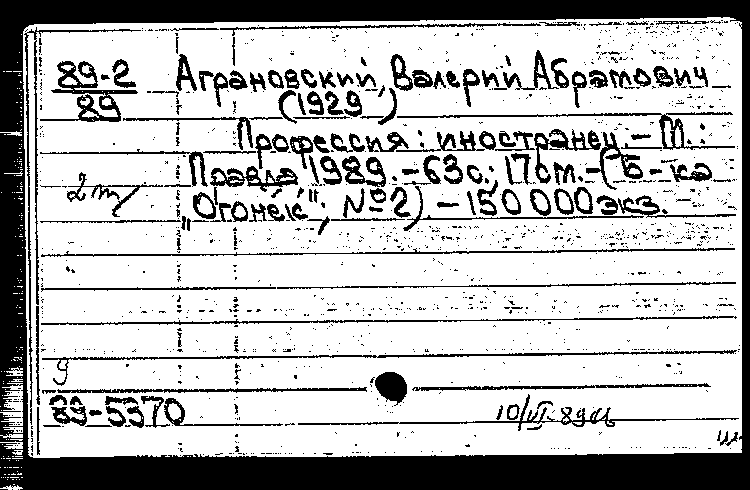 89-2
89
Аграновский, Валерий Абрамович
(1929 )
Профессия: иностранец. – М.:
Правда 1989. – 63 с.; 17 см. – (Б-ка
"Огонёк"; № 2). – 150 000 экз.
2 т/
9
89-5370
10/VI-89